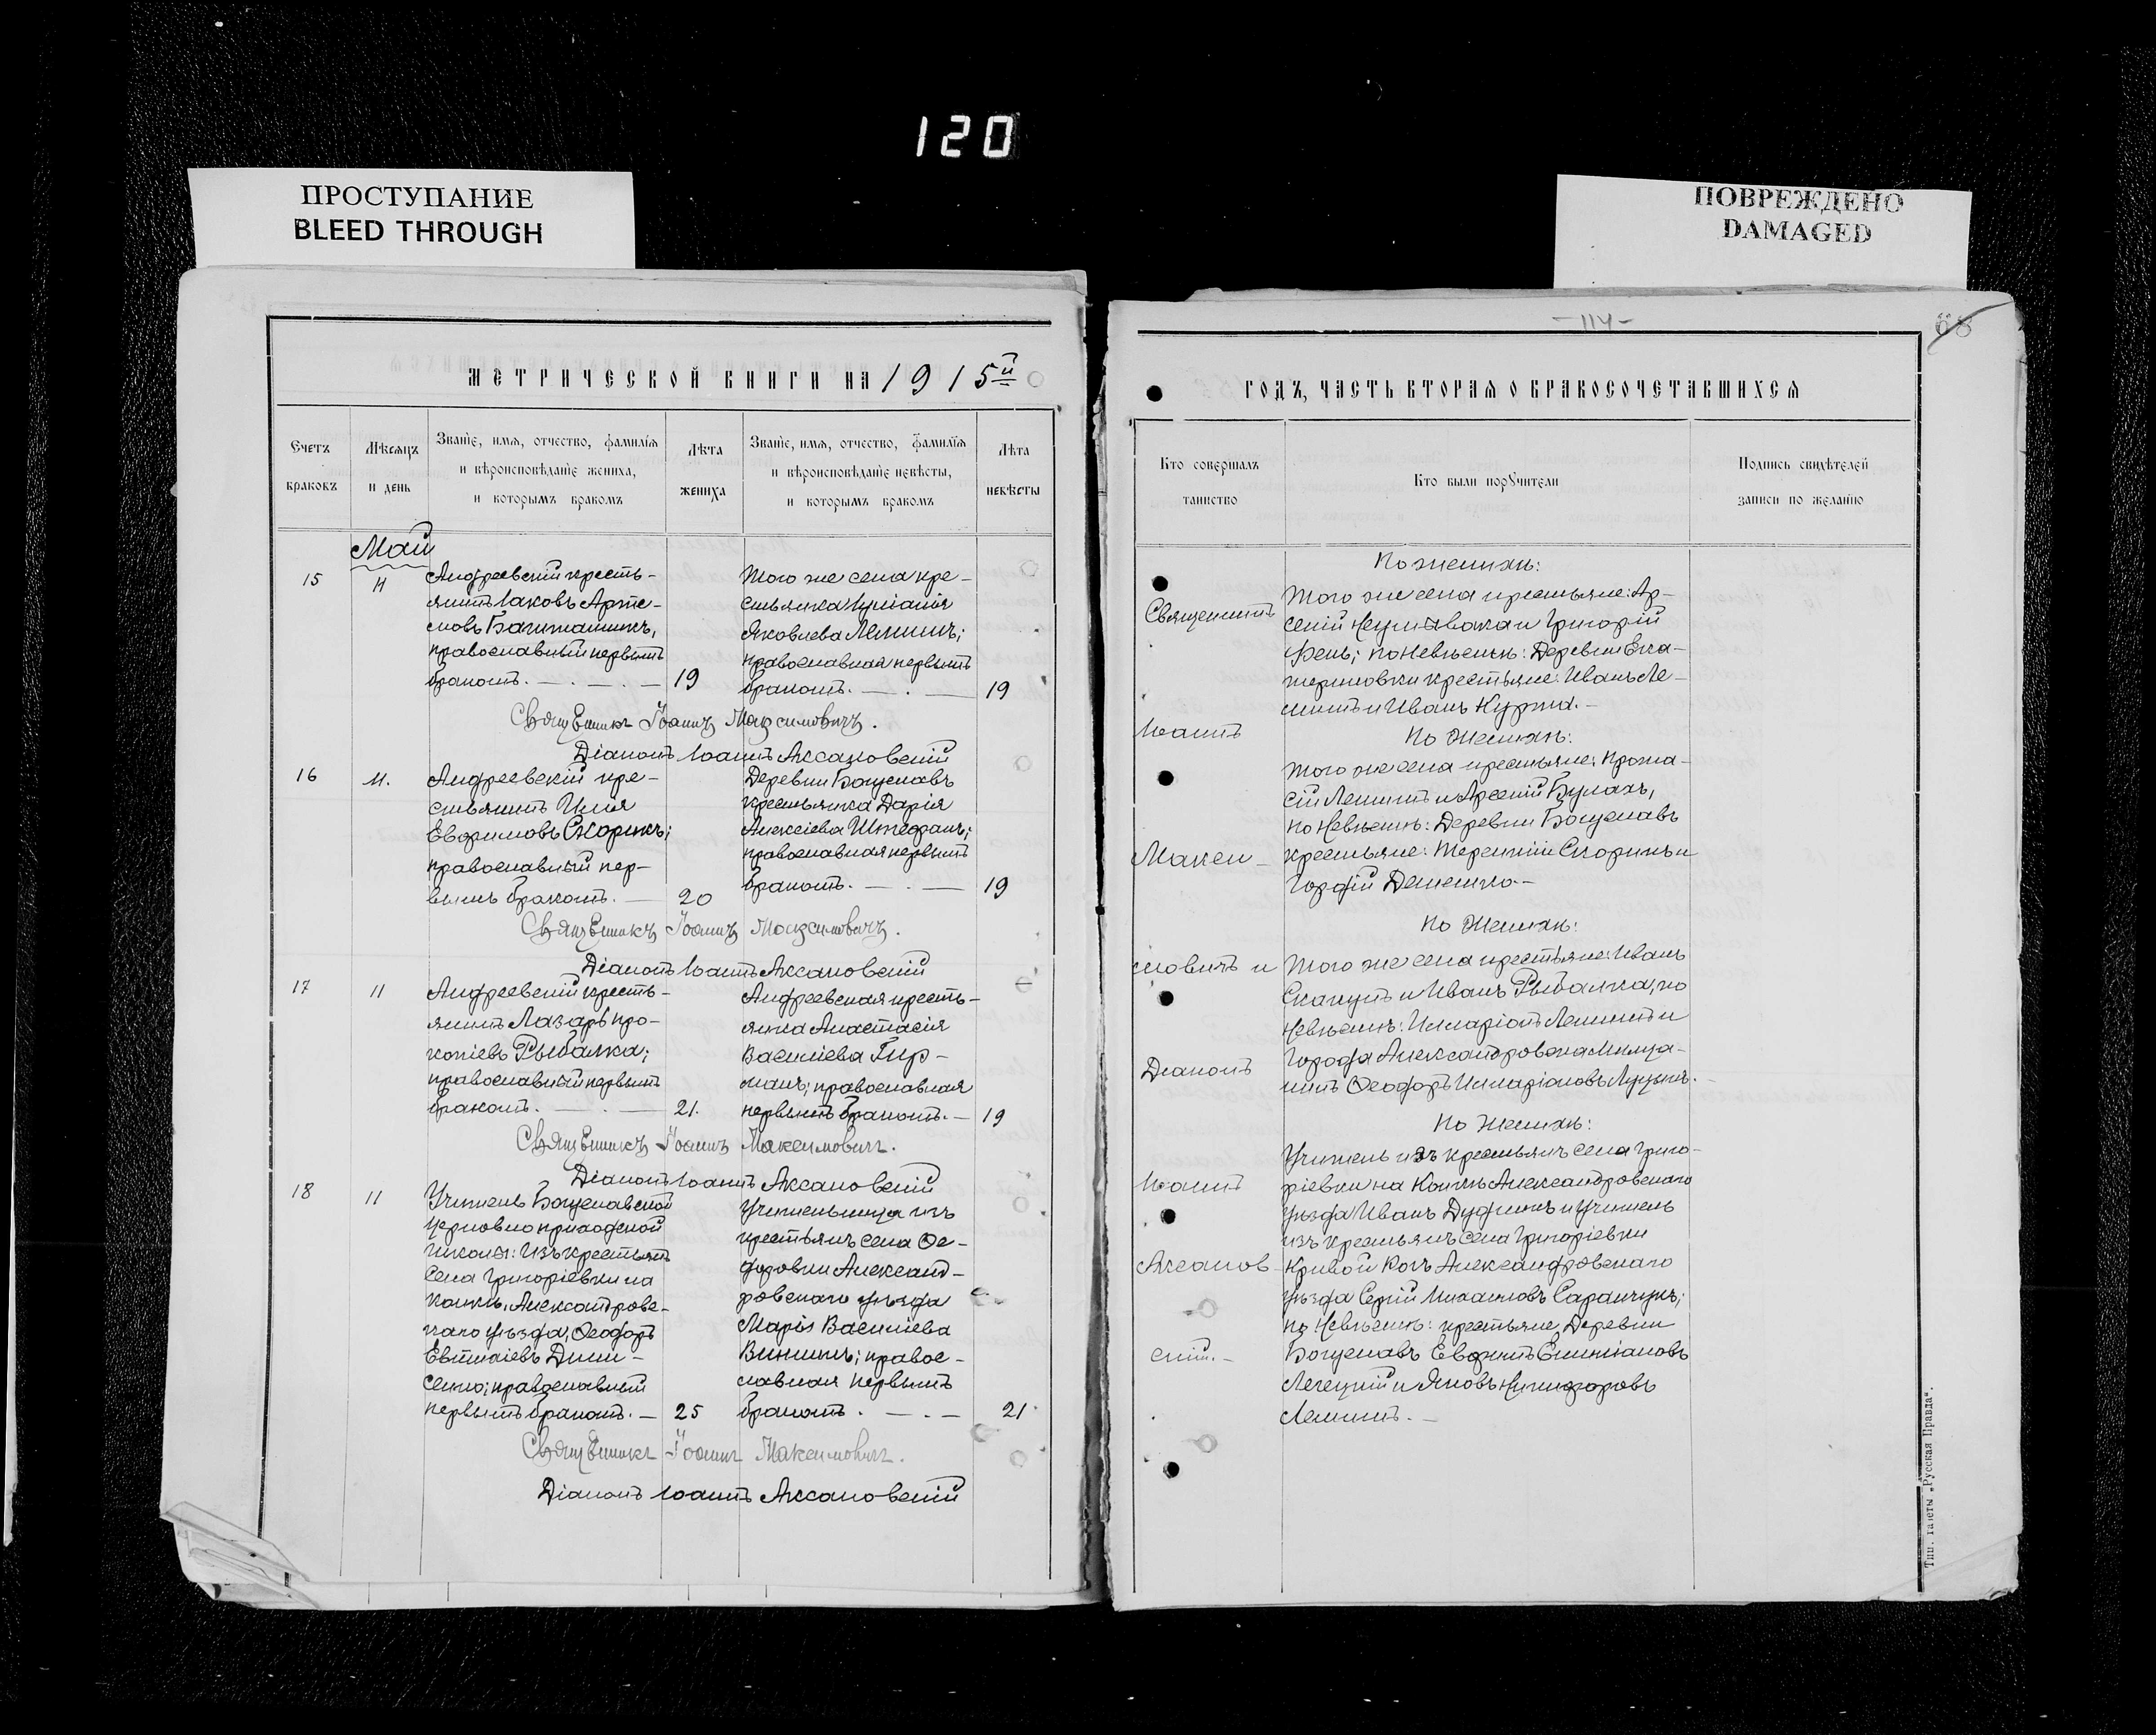 120
ПРОСТУПАНИЕ
BLEED THROUGH
ПОВРЕЖДЕНО
DAMAGED
МЕТРИЧЕСКОЙ КНИГИ НА 1915й
Счетъ браковъ
Мѣсяцъ и день
Званїе, имя, отчество, фамилїя
и вѣроисповѣданїе жениха,
и которымъ бракомъ
Лѣта жениха
Званїе, имя, отчество, фамилїя
и вѣроисповѣданїе невѣсты,
и которымъ бракомъ
Лѣта невѣсты
Май
15
11
Андреевскій кресть-
янинъ Іаковъ Арте-
мовъ Баштанникъ,
православный первымъ
бракомъ.
19
того же села кре-
стьянка
Яковлева Леминъ;
православная первымъ
бракомъ.
19
Священникъ Іоаннъ Максимовичъ.
Діаконъ Іоаннъ Аксановскій
16
11.
Андреевскій кре-
стьянинъ Илія
Евфимовъ Скорикъ;
православный пер-
вымъ бракомъ.
20
Деревни Богуславъ
крестьянка Дарія
Алексіева Штефанъ;
православная первымъ
бракомъ.
19
Священникъ Іоаннъ Максимовичъ.
Діаконъ Іоаннъ Аксановскій
17
11
Андреевскій кресть-
янинъ Лазарь Про-
копіевъ Рыбалка;
православный первымъ
бракомъ.
21.
Андреевская кресть-
янка Анастасія
Василіева Гир-
манъ; православная
первымъ бракомъ.
19
Священникъ Іоаннъ Максимовичъ.
Діаконъ Іоаннъ Аксановскій
18
11
Учитель Богуславской
церковно приходской
школы: изъ крестьянъ
села Григоріевки на
Конкѣ, Александровс-
каго уѣзда, Ѳеодоръ
Евтихіевъ Дени-
сенко; православный
первымъ бракомъ.
25
Учительница изъ
крестьянъ села Ѳе-
доровки Александ-
ровскаго уѣзда
Марія Василіева
православ-
славная первымъ
бракомъ.
21
Священникъ Іоаннъ Максимовичъ.
Діаконъ Іоаннъ Аксановскій
- 114 -
68
ГОДЪ, ЧАСТЬ ВТОРАЯ О БРАКОСОЧЕТАВШИХСЯ
Кто совершалъ таинство
Кто были порꙋчители
Подпись свидѣтелей
записи по желанїю
Священникъ
Іоаннъ
Макси-
мовичъ и
Діаконъ
Іоаннъ
Аксанов-
скій.
По женихѣ:
того же села крестьяне: Ар-
сеній и Григорій
Фень; по невѣстѣ: Деревни Ека-
териновки крестьяне: Иванъ Ле-
минъ и Иванъ Курта.
По женихѣ:
того же села крестьяне: Прота-
сій Леминъ и Арсеній Булахъ,
по невѣстѣ: Деревни Богуславъ
крестьяне: Терентій Скорикъ и
Гордій
По женихѣ:
того же села крестьяне: Иванъ
Скакунъ и Иванъ Рыбалка; по
невѣстѣ: Илларіонъ Леминъ и
города Александровска мѣща-
нинъ Ѳеодоръ Илларіоновъ
По женихѣ:
Учитель изъ крестьянъ села Григо-
ріевки на Конкѣ Александровскаго
уѣзда Иванъ Дудникъ и учитель
изъ крестьянъ села Григоріевки
Александровскаго
уѣзда Сергій Михаиловъ Саранчукъ;
по невѣстѣ: крестьяне Деревни
Богуславъ Евфимъ
и Яковъ Никифоровъ
Леминъ.
Тип. газеты „Русская Правда“.